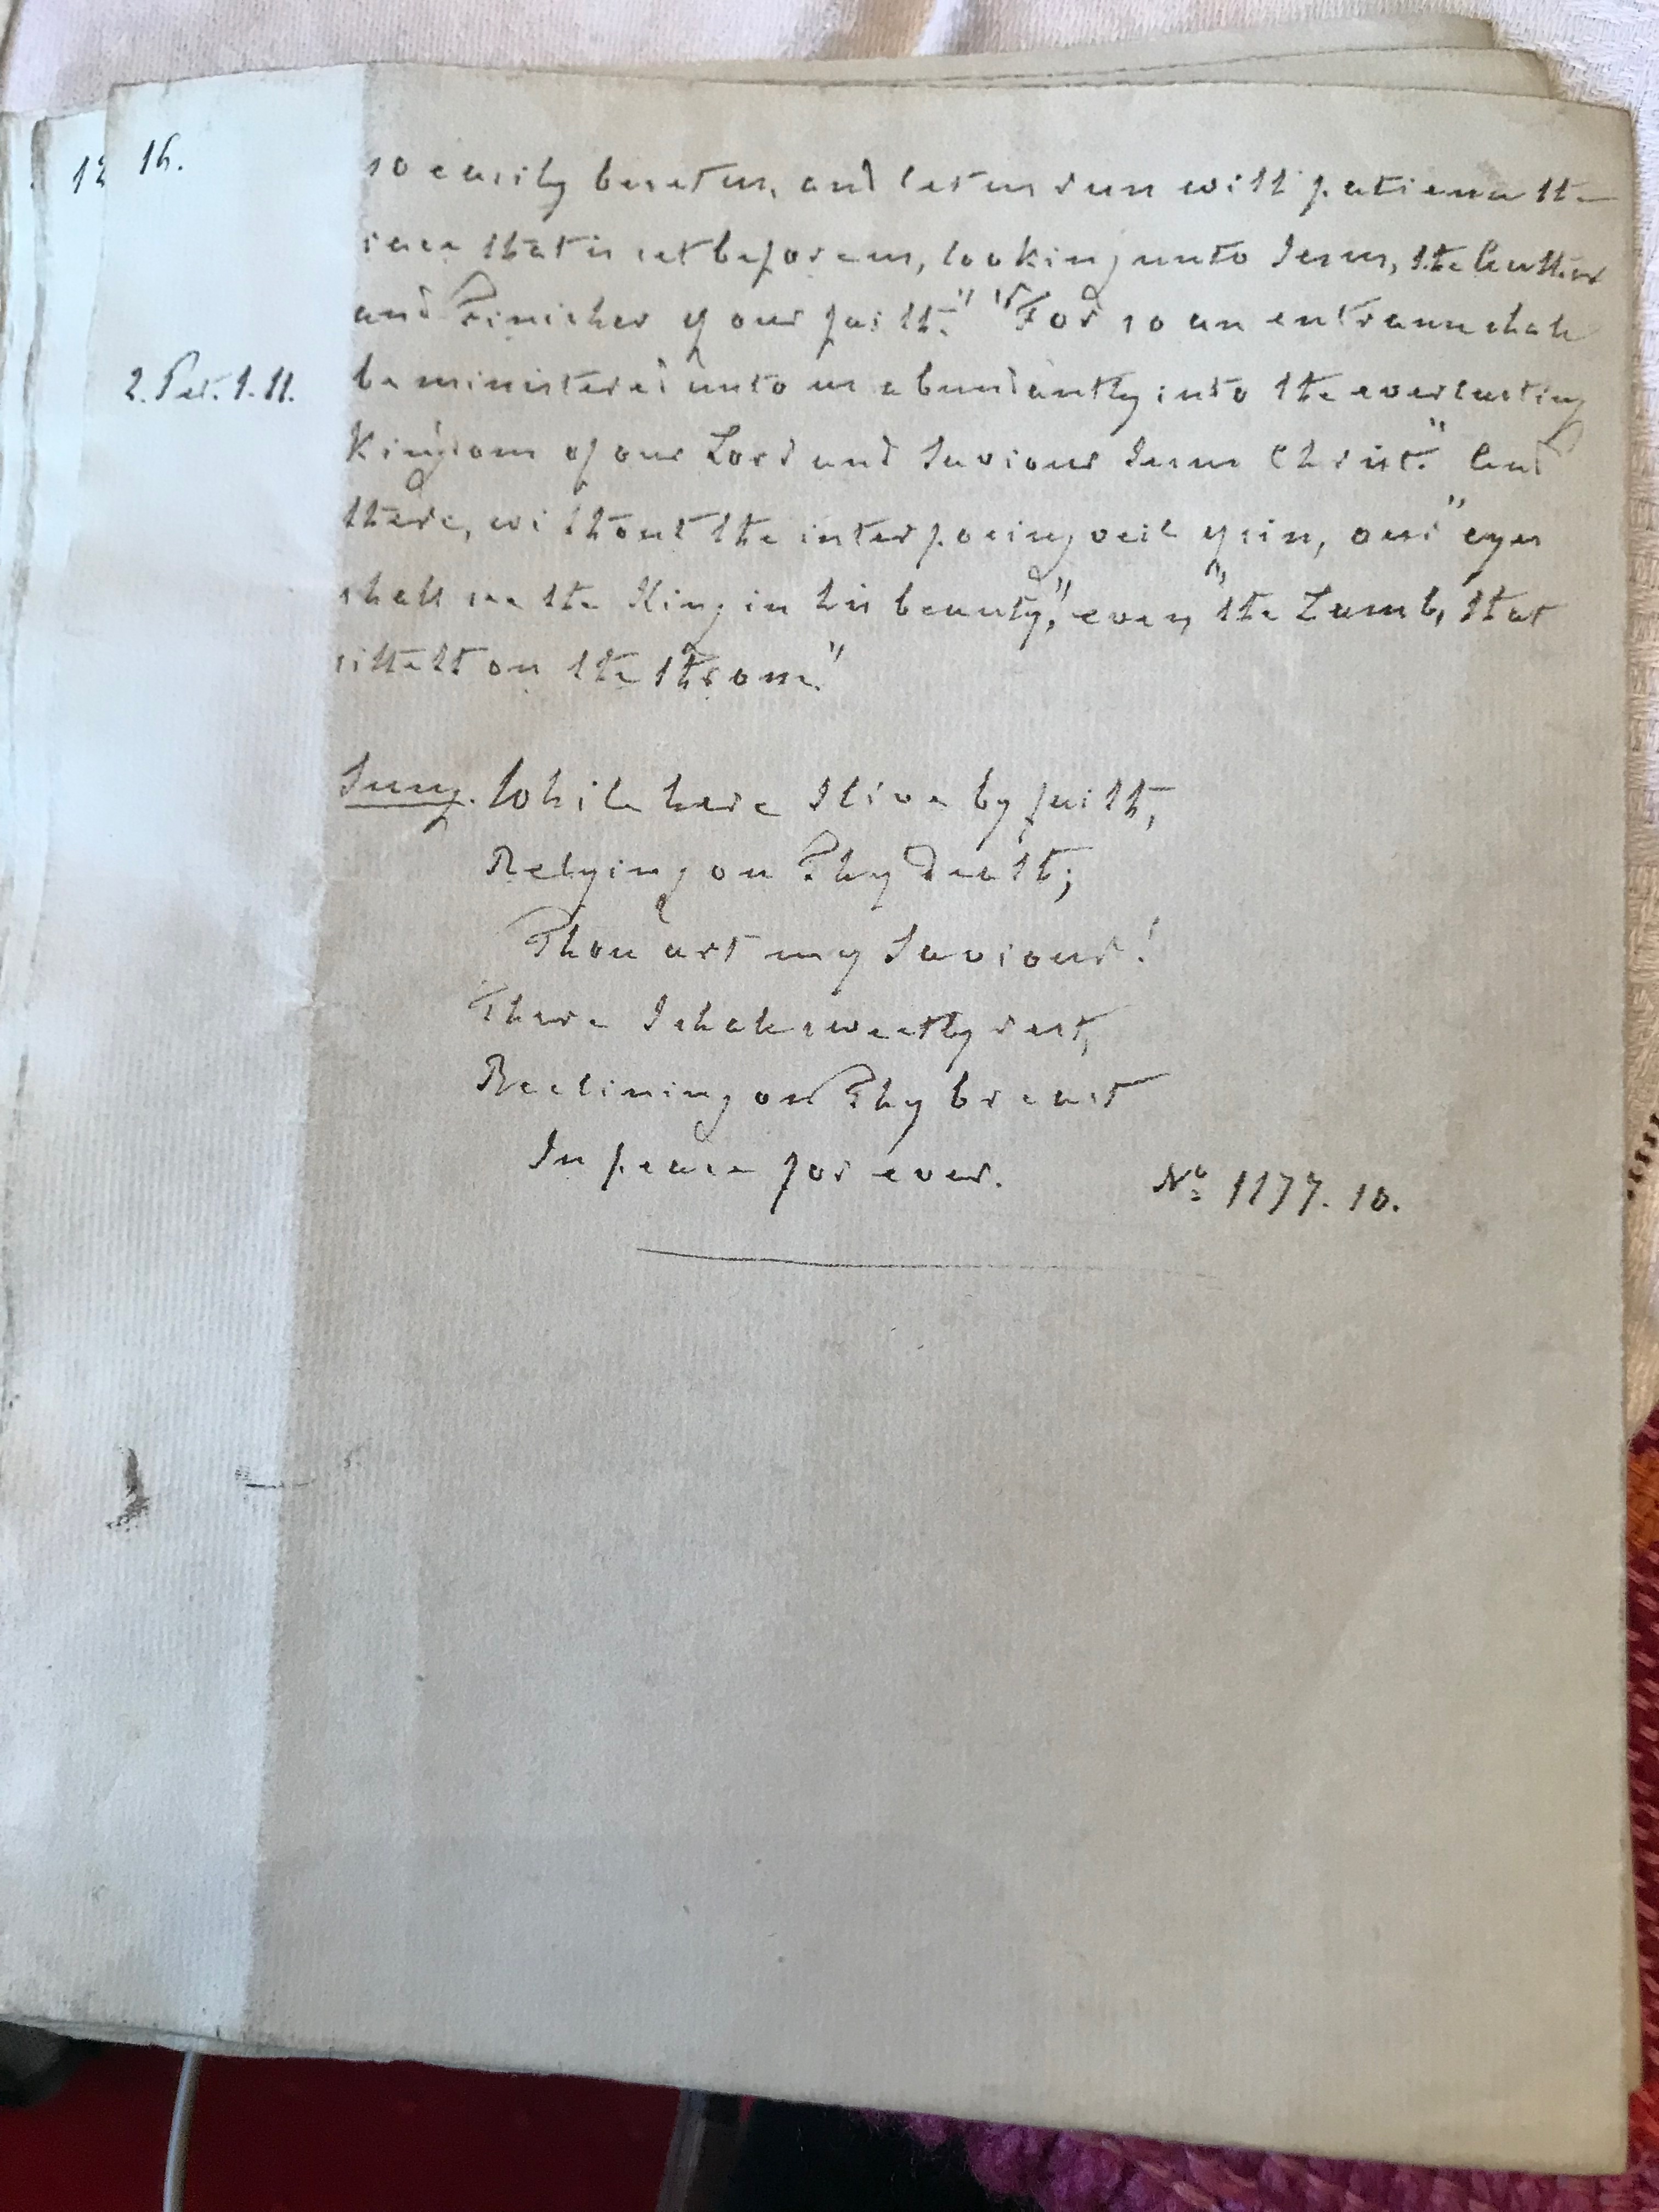 12
16.
so easily beset us, and let us run with patience the
race that is set before us, looking unto Jesus, the Author
and Finisher of our faith." "For so an entrance shall
2. Pet. 1. 11.
be ministered unto us abundantly into the everlasting
Kingdom of our Lord and Saviour Jesus Christ." And
there, without the interposing veil of sin, our "eyes
shall see the King in his beauty," even "the Lamb, that
sitteth on the throne."
Sung. While here I live by faith,
Relying on Thy Death;
Thou art my Saviour!
There I shall sweetly rest,
Reclining on Thy breast
In peace for ever.
No. 1177. 10.